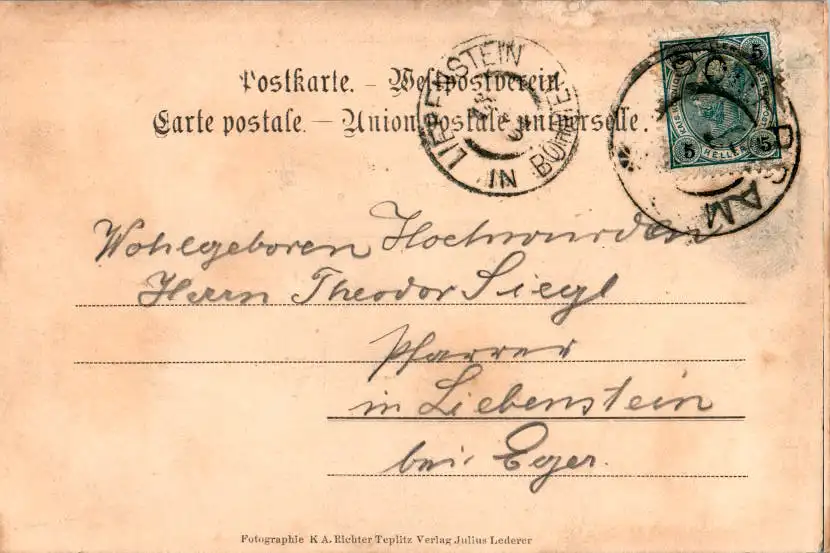 Postkarte. – Weltpostverein.
Carte postale. – Union postale universelle.
LIEBENSTEIN
IN BÖHMEN
5
5 HELLER 5
Wohlgeboren Hochwürden
Herrn Theodor Siegl
Pfarrer
in Liebenstein
bei Eger.
Fotographie K A. Richter Teplitz Verlag Julius Lederer